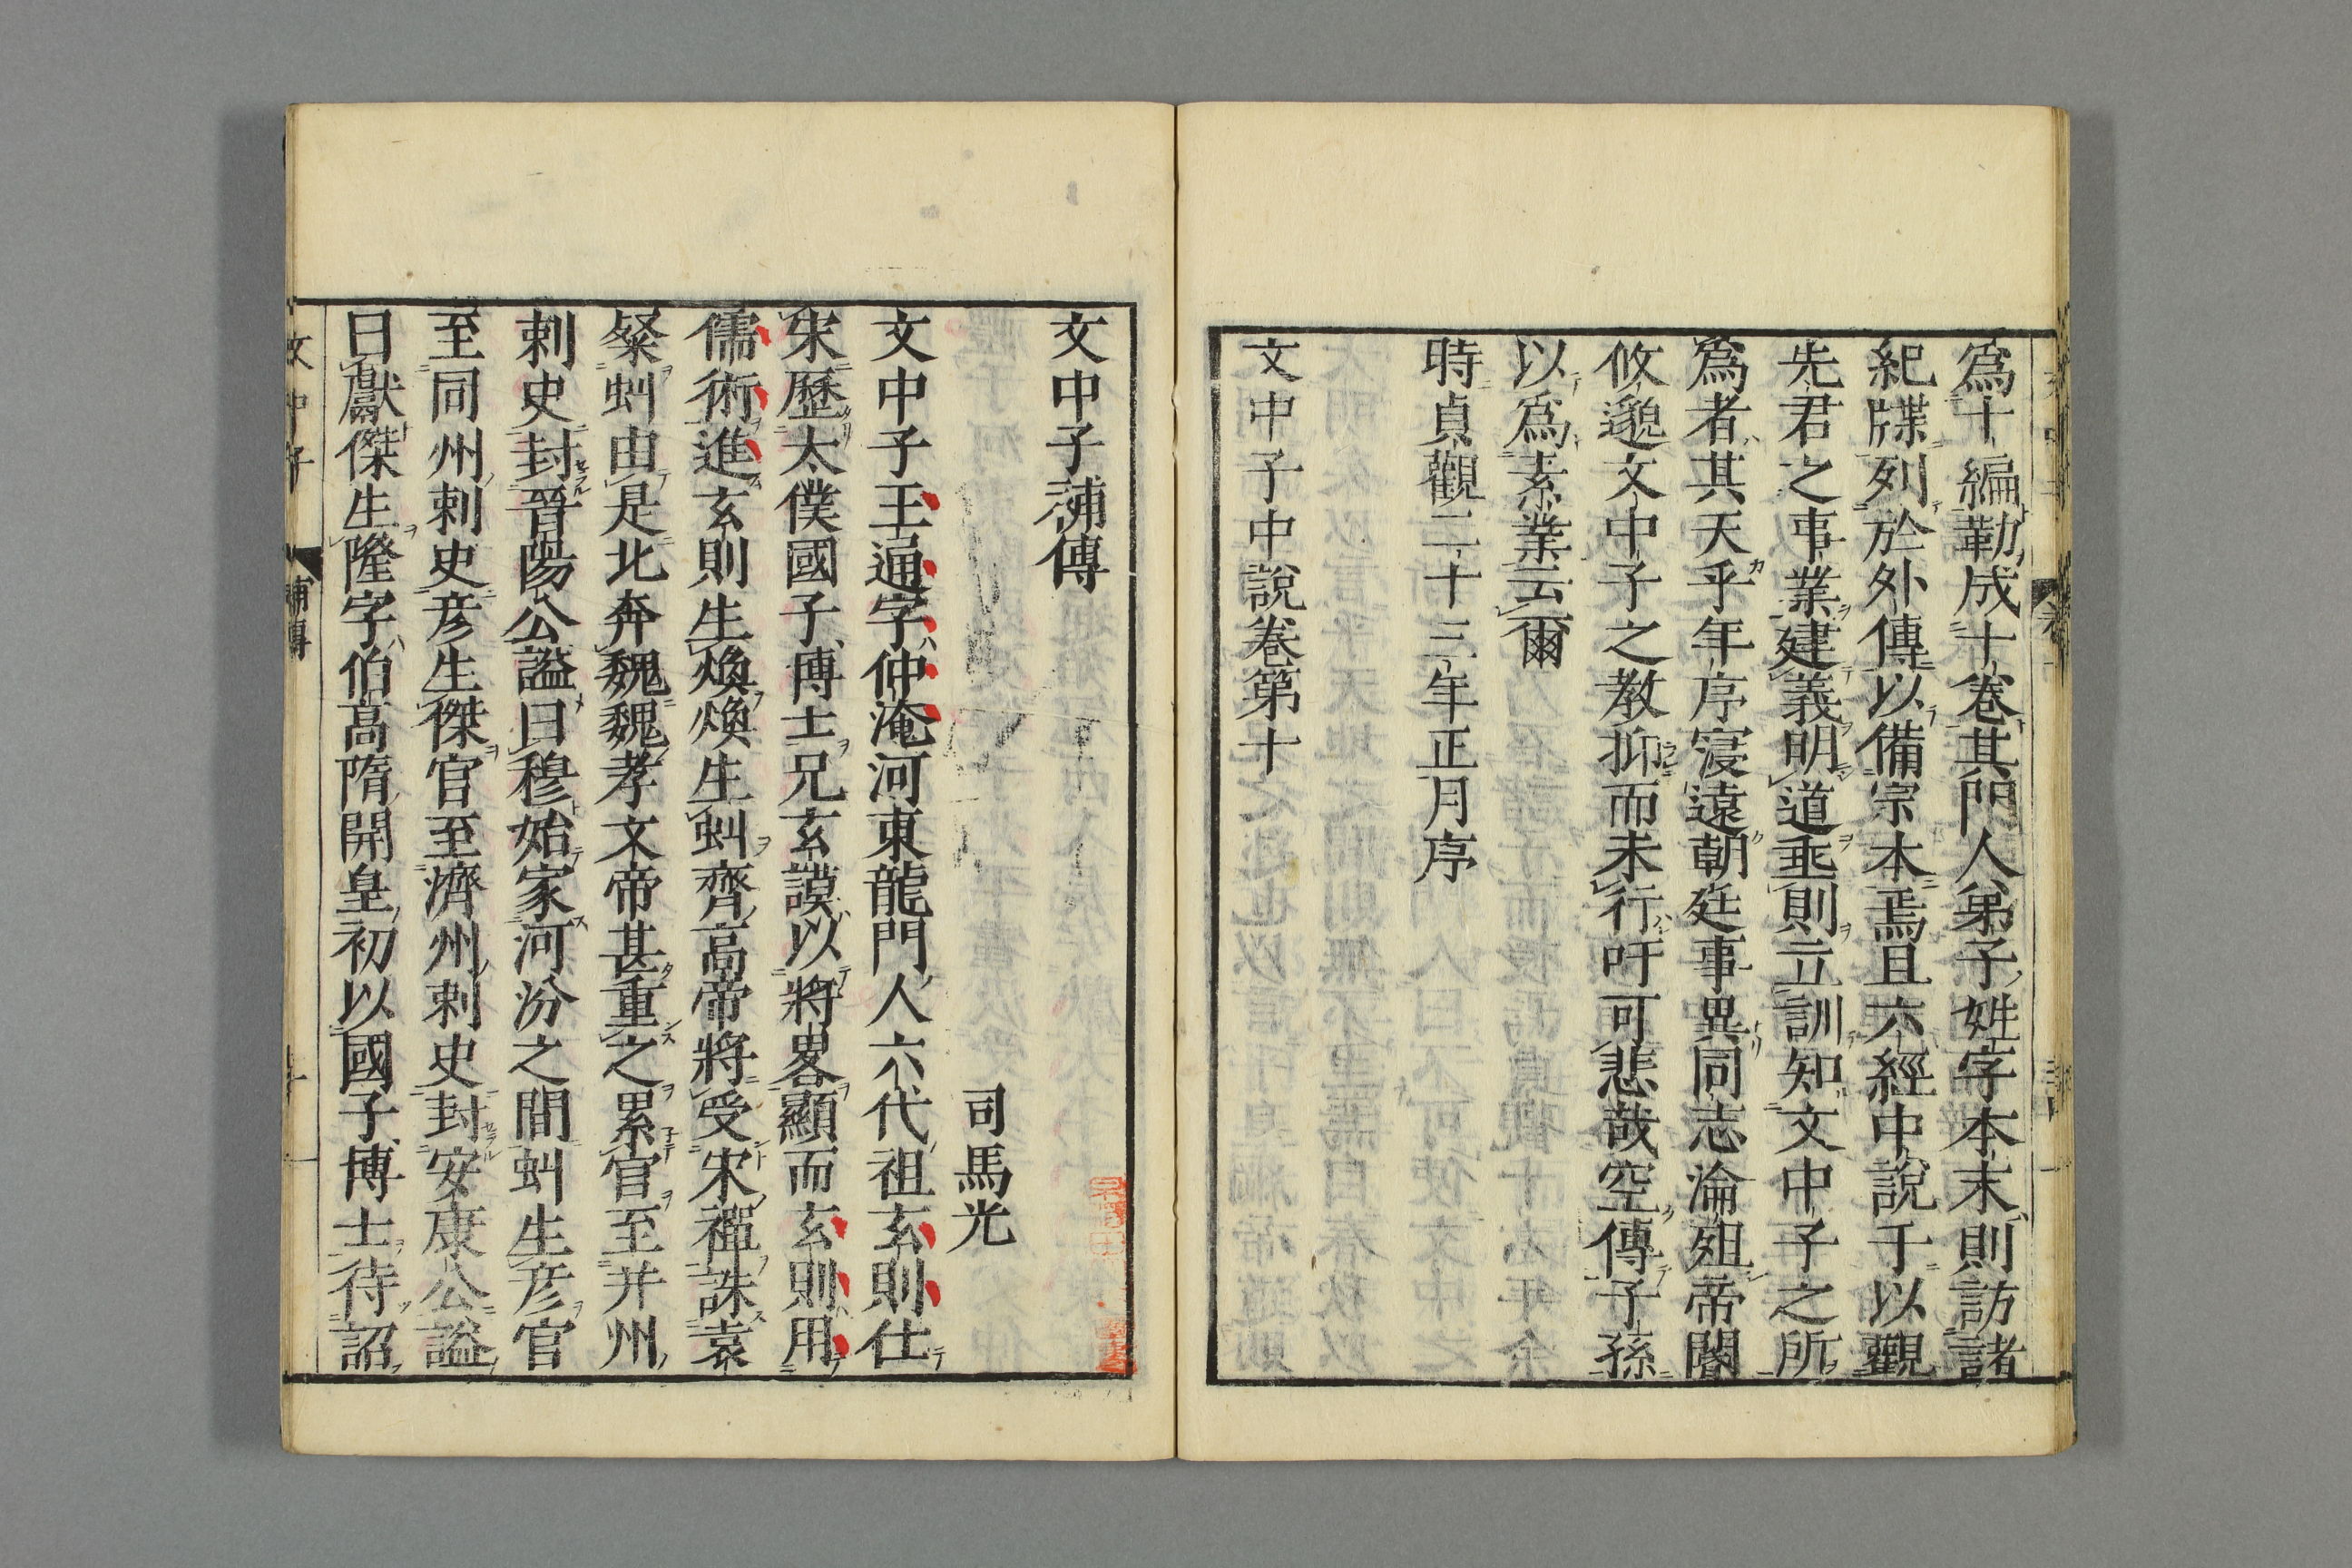 爲十編勒成十卷其門人弟子姓字本末則訪諸
紀牒列於外傳以備宗本焉且六經中說于以觀
先君之事業建義明道垂則立訓知文中子之所
爲者其天乎年序寖遠朝廷事異同志淪殂帝閽
攸邈文中子之教抑而未行吁可悲哉空傳子孫
以爲素業云爾
時貞觀二十三年正月序
文中子中說卷第十
文中子補傳
司馬光
文中子王通字仲淹河東龍門人六代祖玄則仕
宋歷太僕國子博士兄玄謨以將畧顯而玄則用
儒術進玄則生煥煥生虯齊高帝將受宋禪誅袁
粲虯由是北奔魏魏孝文帝甚重之累官至并州
刺史封晉陽公謚曰穆始家河汾之間虯生彦官
至同州刺史彦生傑官至濟州刺史封安康公謚
曰獻傑生隆字伯高隋開皇初以國子博士待詔
文中子
補傳